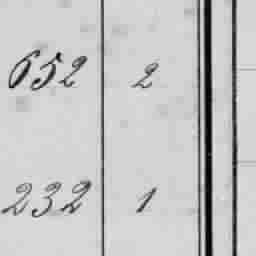 652 2
232 1